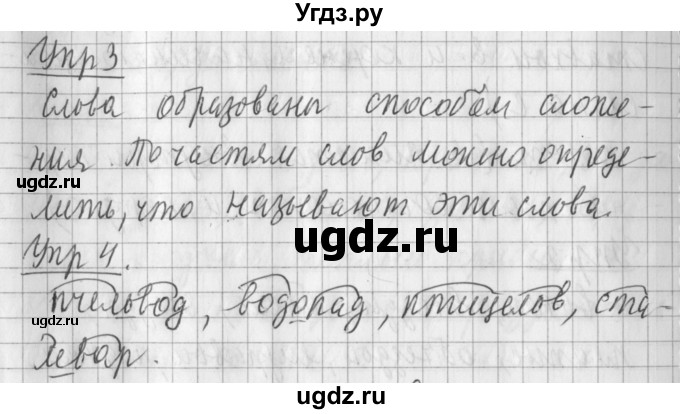 Угдз.ру
Упр 3
Слова образованы способом сложе-
ния. По частям слов можно опреде-
лить, что называют эти слова.
ugdz.ru
ugdz.ru
ugdz.ru
Упр 4.
пчеловод, водопад, птицелов, ста-
левар.
ugdz.ru
ugdz.ru